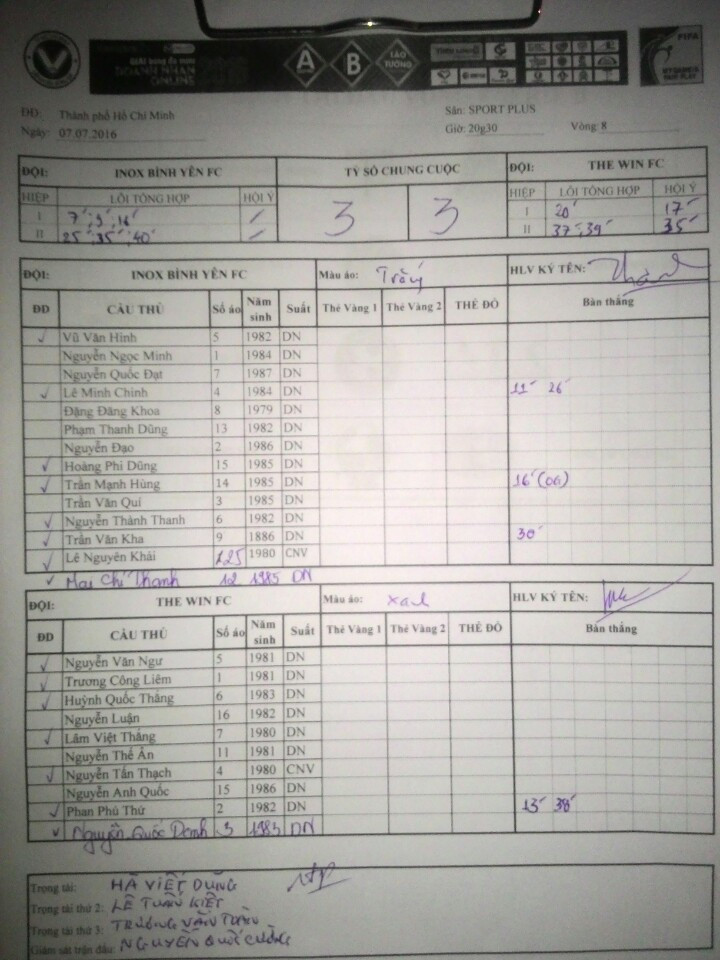 GIẢI BÓNG ĐÁ MINI
DOANH NHÂN
ONLINE
A
B
LÀO
TƯỞNG
FIFA
MY GAME IS
FAIR PLAY
ĐĐ: Thành phố Hồ Chí Minh
Sân: SPORT PLUS
Ngày: 07.07.2016
Giờ: 20g30 Vòng: 8
ĐỘI: INOX BÌNH YÊN FC TỶ SỐ CHUNG CUỘC ĐỘI: THE WIN FC
HIỆP LỖI TỔNG HỢP HỘI Ý 3 3 HIỆP LỖI TỔNG HỢP HỘI Ý
I 7' ; 9' ; 16' / I 20' 17'
II 25' ; 35' ; 40' / II 37' ; 39' 35'
ĐỘI: INOX BÌNH YÊN FC Màu áo: Trắng HLV KÝ TÊN:
ĐD CẦU THỦ Số áo Năm sinh Suất Thẻ Vàng 1 Thẻ Vàng 2 THẺ ĐỎ Bàn thắng
✓ Vũ Văn Hinh 5 1982 DN
Nguyễn Ngọc Minh 1 1984 DN
Nguyễn Quốc Đạt 7 1987 DN
✓ Lê Minh Chinh 4 1984 DN 11' 26'
Đặng Đăng Khoa 8 1979 DN
Phạm Thanh Dũng 13 1982 DN
Nguyễn Đạo 2 1986 DN
✓ Hoàng Phi Dũng 15 1985 DN
✓ Trần Mạnh Hùng 14 1985 DN 16' (OG)
Trần Văn Quí 3 1985 DN
✓ Nguyễn Thành Thanh 6 1982 DN
✓ Trần Văn Kha 9 1886 DN 30'
✓ Lê Nguyên Khải 125 1980 CNV
✓ Mai Chí Thanh 12 1985 DN
ĐỘI: THE WIN FC Màu áo: Xanh HLV KÝ TÊN:
ĐD CẦU THỦ Số áo Năm sinh Suất Thẻ Vàng 1 Thẻ Vàng 2 THẺ ĐỎ Bàn thắng
✓ Nguyễn Văn Ngư 5 1981 DN
✓ Trương Công Liêm 1 1981 DN
✓ Huỳnh Quốc Thắng 6 1983 DN
Nguyễn Luận 16 1982 DN
✓ Lâm Việt Thắng 7 1980 DN
Nguyễn Thế Ân 11 1981 DN
✓ Nguyễn Tấn Thạch 4 1980 CNV
Nguyễn Anh Quốc 15 1986 DN
✓ Phan Phú Thứ 2 1982 DN 13' 38'
✓ Nguyễn Quốc Danh 3 1983 DN
Trọng tài: HÀ VIẾT DŨNG
Trọng tài thứ 2: LÊ TUẤN KIỆT
Trọng tài thứ 3: TRƯƠNG VĂN TOÀN
Giám sát trận đấu: NGUYỄN QUỐC CƯỜNG